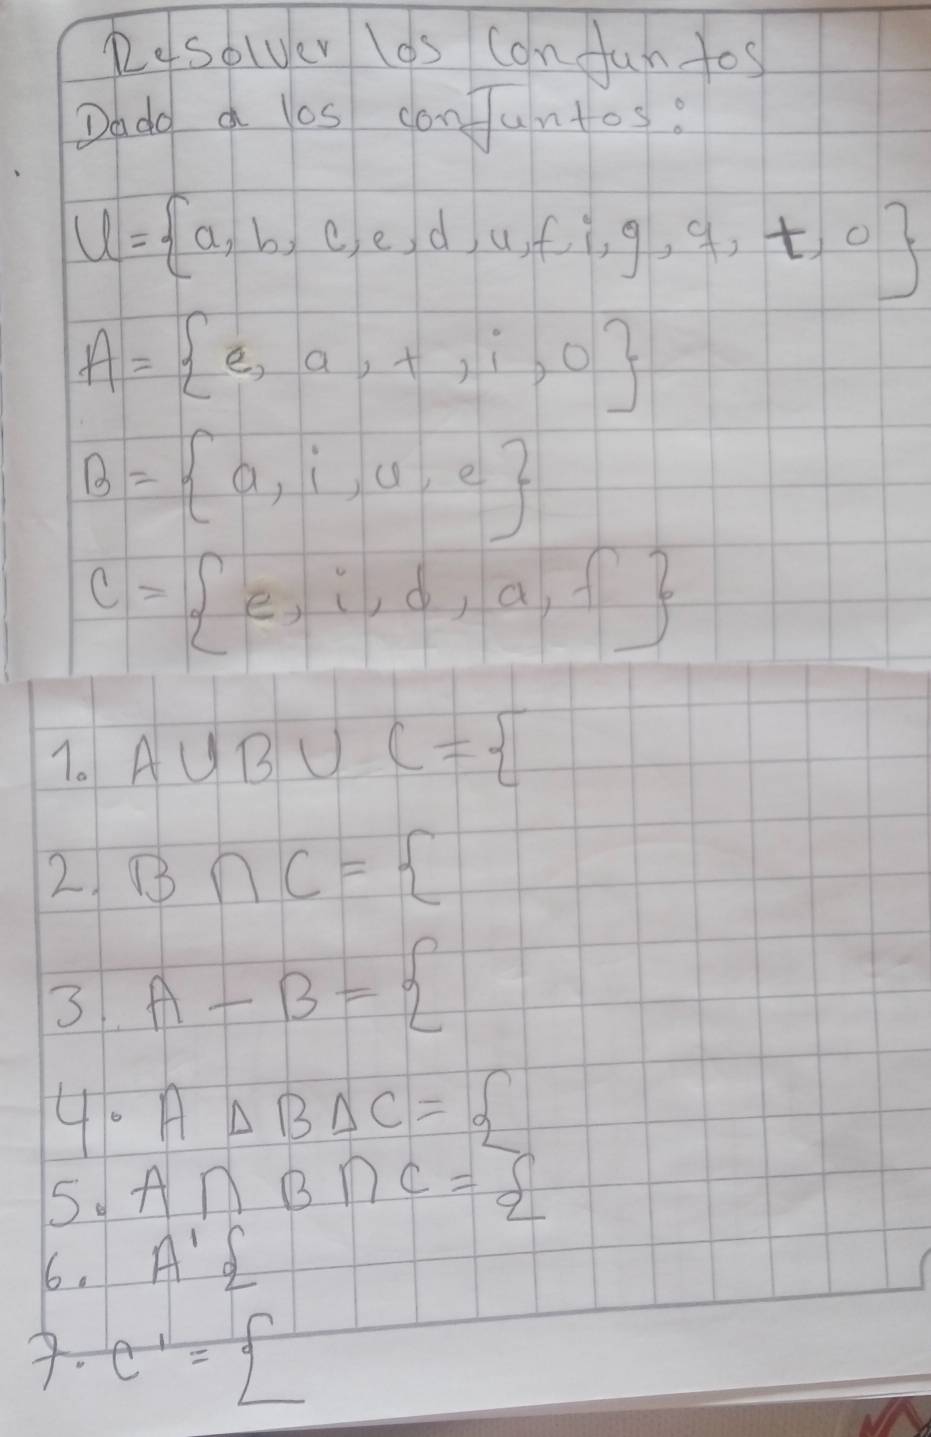 Resolver los Conjuntos
Dado a los conjuntos:
U={a, b, c, e, d, u, f, i, g, q, t, o}
A={e, a, t, i, o}
B={a, i, u, e}
C={e, i, d, a, f}
1. A U B U C={
2. B ∩ C={
3. A - B={
4. A Δ B Δ C={
5. A ∩ B ∩ C={
6. A' {
7. C' = {